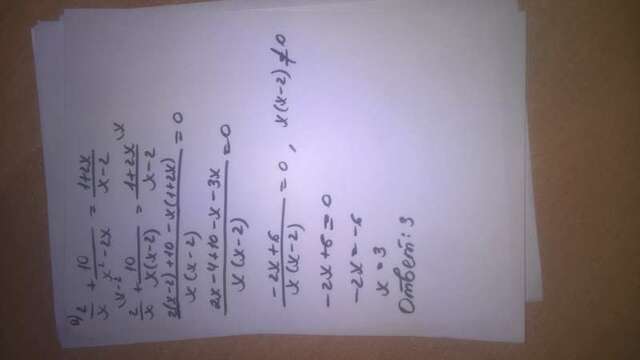 a) 2/x + 10/(x² - 2x) = (1+2x)/(x-2)
2/x + 10/(x(x-2)) = (1+2x)/(x-2)
(2(x-2)+10-x(1+2x))/(x(x-2)) = 0
(2x-4+10-x-3x)/(x(x-2)) = 0
(-2x+6)/(x(x-2)) = 0, x(x-2)≠0
-2x+6=0
-2x=-6
x=3
Ответ: 3